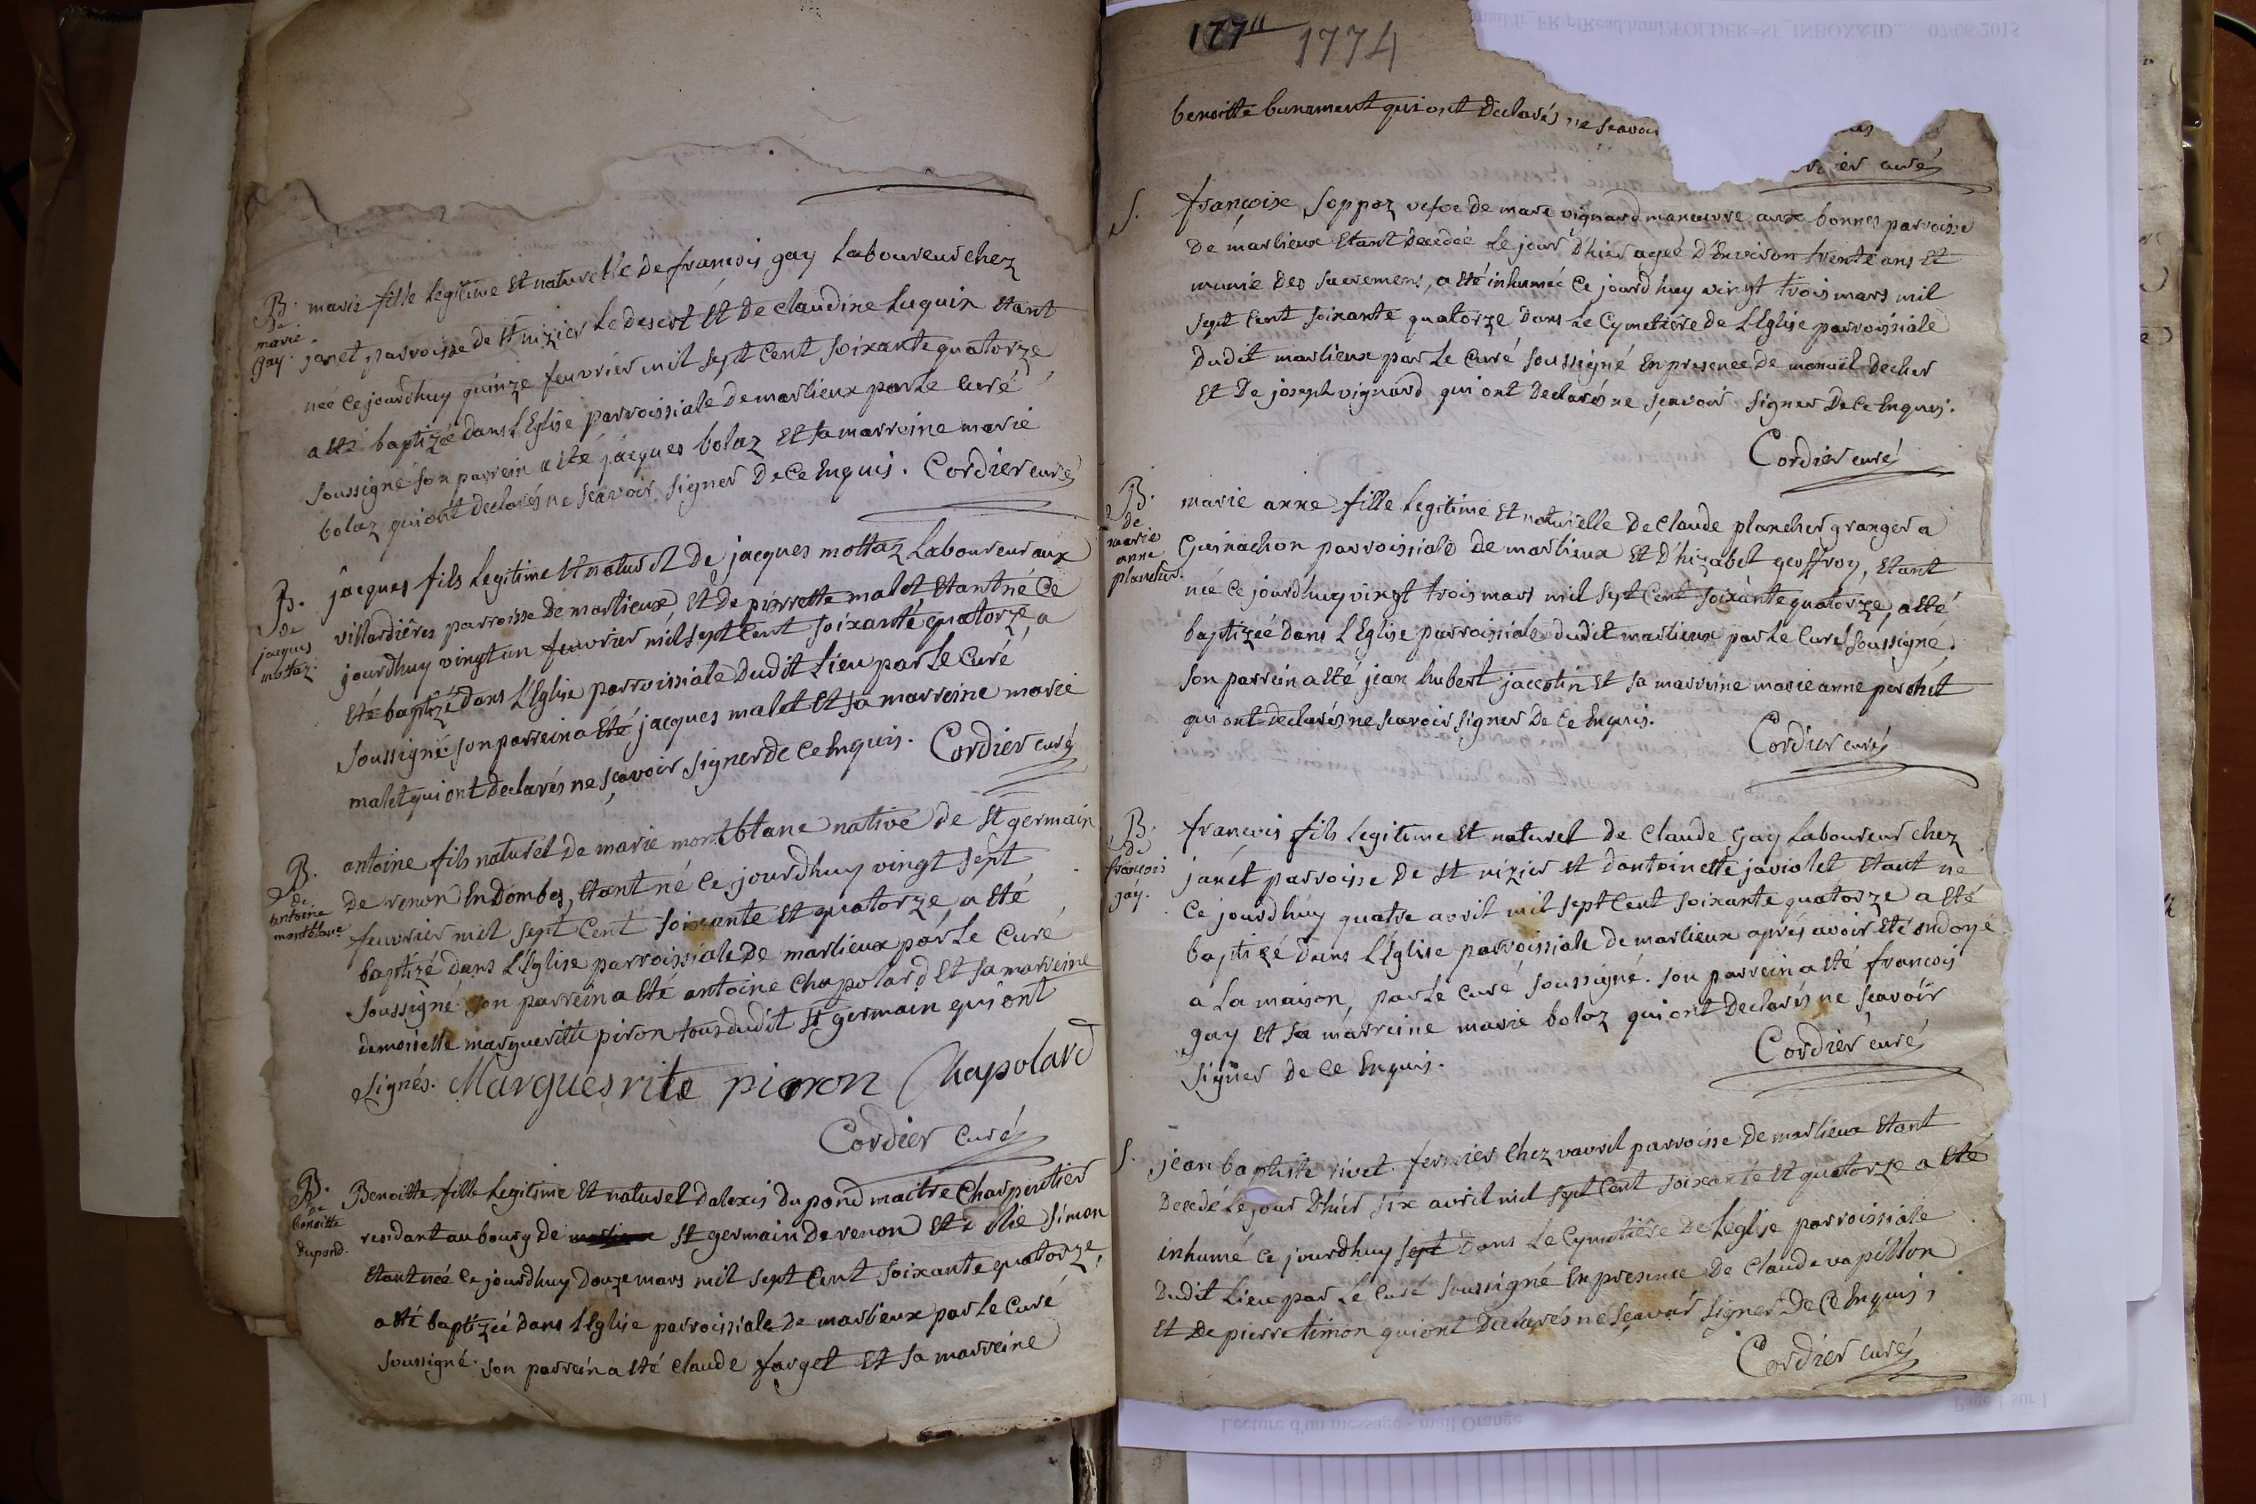 B. de marie gay.
marie fille Legitime Et naturelle de francois gay Laboureur chez
janet parroisse de st nizier Le desert Et De claudine Luquin Etant
née ce jourdhuy quinze feuvrier mil sept Cent soixante quatorze
a Eté baptizée dans L'Eglise parroissiale de marlieux par Le curé
soussigné son parrein a Eté jacques bolaz Et sa marreine marie
bolaz qui ont declarés ne sçavoir signer De ce Enquis. Cordier curé
B. de jacques mottaz.
jacques fils Legitime Et naturel De jacques mottaz Laboureur aux
villardières parroisse De marlieux, Et De pierrette malet, Etant né Ce
jourdhuy vingt un feuvrier mil sept Cent soixante quatorze, a
Eté baptizé dans L'Eglise parroissiale Dudit Lieu par Le Curé
soussigné son parrein a Eté jacques malet Et sa marreine marie
malet qui ont declarés ne sçavoir signer de ce Enquis. Cordier curé
B. de antoine montblanc
antoine fils naturel De marie montblanc native de St germain
De renon En Dombes, Etant né Ce jourdhuy vingt sept
feuvrier mil sept Cent soixante Et quatorze, a Eté
baptizé dans L'Eglise parroissiale De marlieux par Le Curé
soussigné. son parrein a Eté antoine Chapolard Et sa marreine
demoiselle marguerite piron tous dudit St germain qui ont
signés. Marguesrite piron Chapolard
Cordier Curé
B. de benoitte dupond.
Benoitte fille Legitime Et naturel dalexis du pond maitre Charpentier
residant au bourg de marlieux St germain De renon Et d'elie Simon
Etant née Ce jourdhuy Douze mars mil sept Cent soixante quatorze,
a Eté baptizée dans L'Eglise parroissiale De marlieux par Le Curé
soussigné. son parrein a Eté claude farget Et sa marreine
1774 1774
benoitte qui ont Declarés ne sçavoir
curé
S.
françoise Soppaz vefve De marc vignard manœuvre aux bonnes parroisse
De marlieux Etant Decedée Le jour D'hier agée D'Environ trente ans Et
munie Des sacremens, a Eté inhumée Ce jourdhuy vingt trois mars mil
sept Cent soixante quatorze Dans Le Cymetiere De L'Eglise parroissiale
Dudit marlieux par Le Curé soussigné En presence De manuel Decher
Et De joseph vignard qui ont Declarés ne sçavoir signer De Ce Enquis.
Cordier curé
B. de marie anne plancher.
marie anne fille Legitime Et naturelle De Claude plancher granger a
Guinachon parroissiale De marlieux Et D'hizabet geoffroy, Etant
née Ce jourdhuy vingt trois mars mil sept Cent soixante quatorze, a Eté
baptizée Dans L'Eglise parroissiale dudit marlieux par Le Curé soussigné.
son parrein a Eté jean hubert jacotin Et sa marreine marie anne perchet
qui ont declarés ne sçavoir signer De Ce Enquis.
Cordier curé
B. de françois gay.
francois fils Legitime Et naturel De Claude Gay Laboureur chez
janét parroisse De St nizier Et dantoinette javiolet Etant né
Ce jourdhuy quatre avril mil sept Cent soixante quatorze a Eté
baptizé dans L'Eglise parroissiale de marlieux aprés avoir Eté ondoyé
a La maison, par Le Curé soussigné. son parrein a Eté francois
gay Et sa marreine marie bolaz qui ont Declarés ne sçavoir
signer De Ce Enquis.
Cordier curé
S.
jean baptiste rivet fermier Chez vavril parroisse De marlieux Etant
Decedé Le jour D'hier six avril mil sept Cent soixante Et quatorze a Eté
inhumé Ce jourdhuy sept Dans Le Cymetiere De L'église parroissiale
Dudit Lieu par Le Curé soussigné En presence De Claude vapillon
Et De pierre timon qui ont Declarés ne sçavoir signer De Ce Enquis,
Cordier curé
Lecture d'un message - mail Orange
Page 1 sur 1
07/06/2015